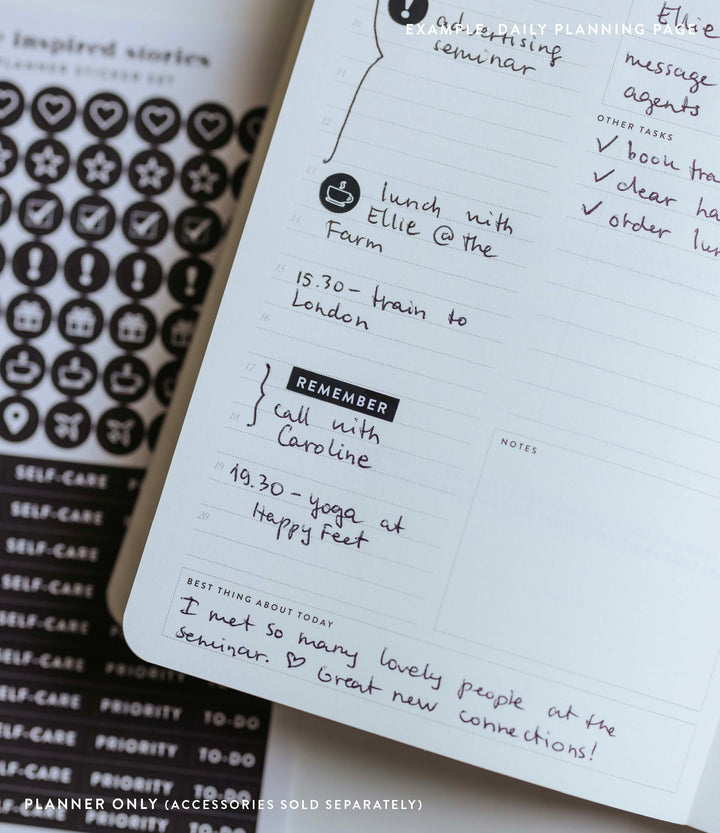 EXAMPLE, DAILY PLANNING PAGE
inspired stories
PLANNER STICKER SET
SELF-CARE
SELF-CARE
SELF-CARE
SELF-CARE
SELF-CARE
SELF-CARE PRIORITY
SELF-CARE PRIORITY TO-DO
SELF-CARE PRIORITY TO-DO
PRIORITY TO-DO
PRIORITY
10
advertising
seminar
11
12
13
lunch with
14
Ellie @ the
Farm
15
15.30 - train to
London
16
17
REMEMBER
call with
18
Caroline
19
19.30 - yoga at
20
Happy Feet
Ellie
message
agents
OTHER TASKS
✓ book
✓ clear
✓ order
NOTES
BEST THING ABOUT TODAY
I met so many lovely people at the
seminar. ♡ Great new connections!
PLANNER ONLY (ACCESSORIES SOLD SEPARATELY)